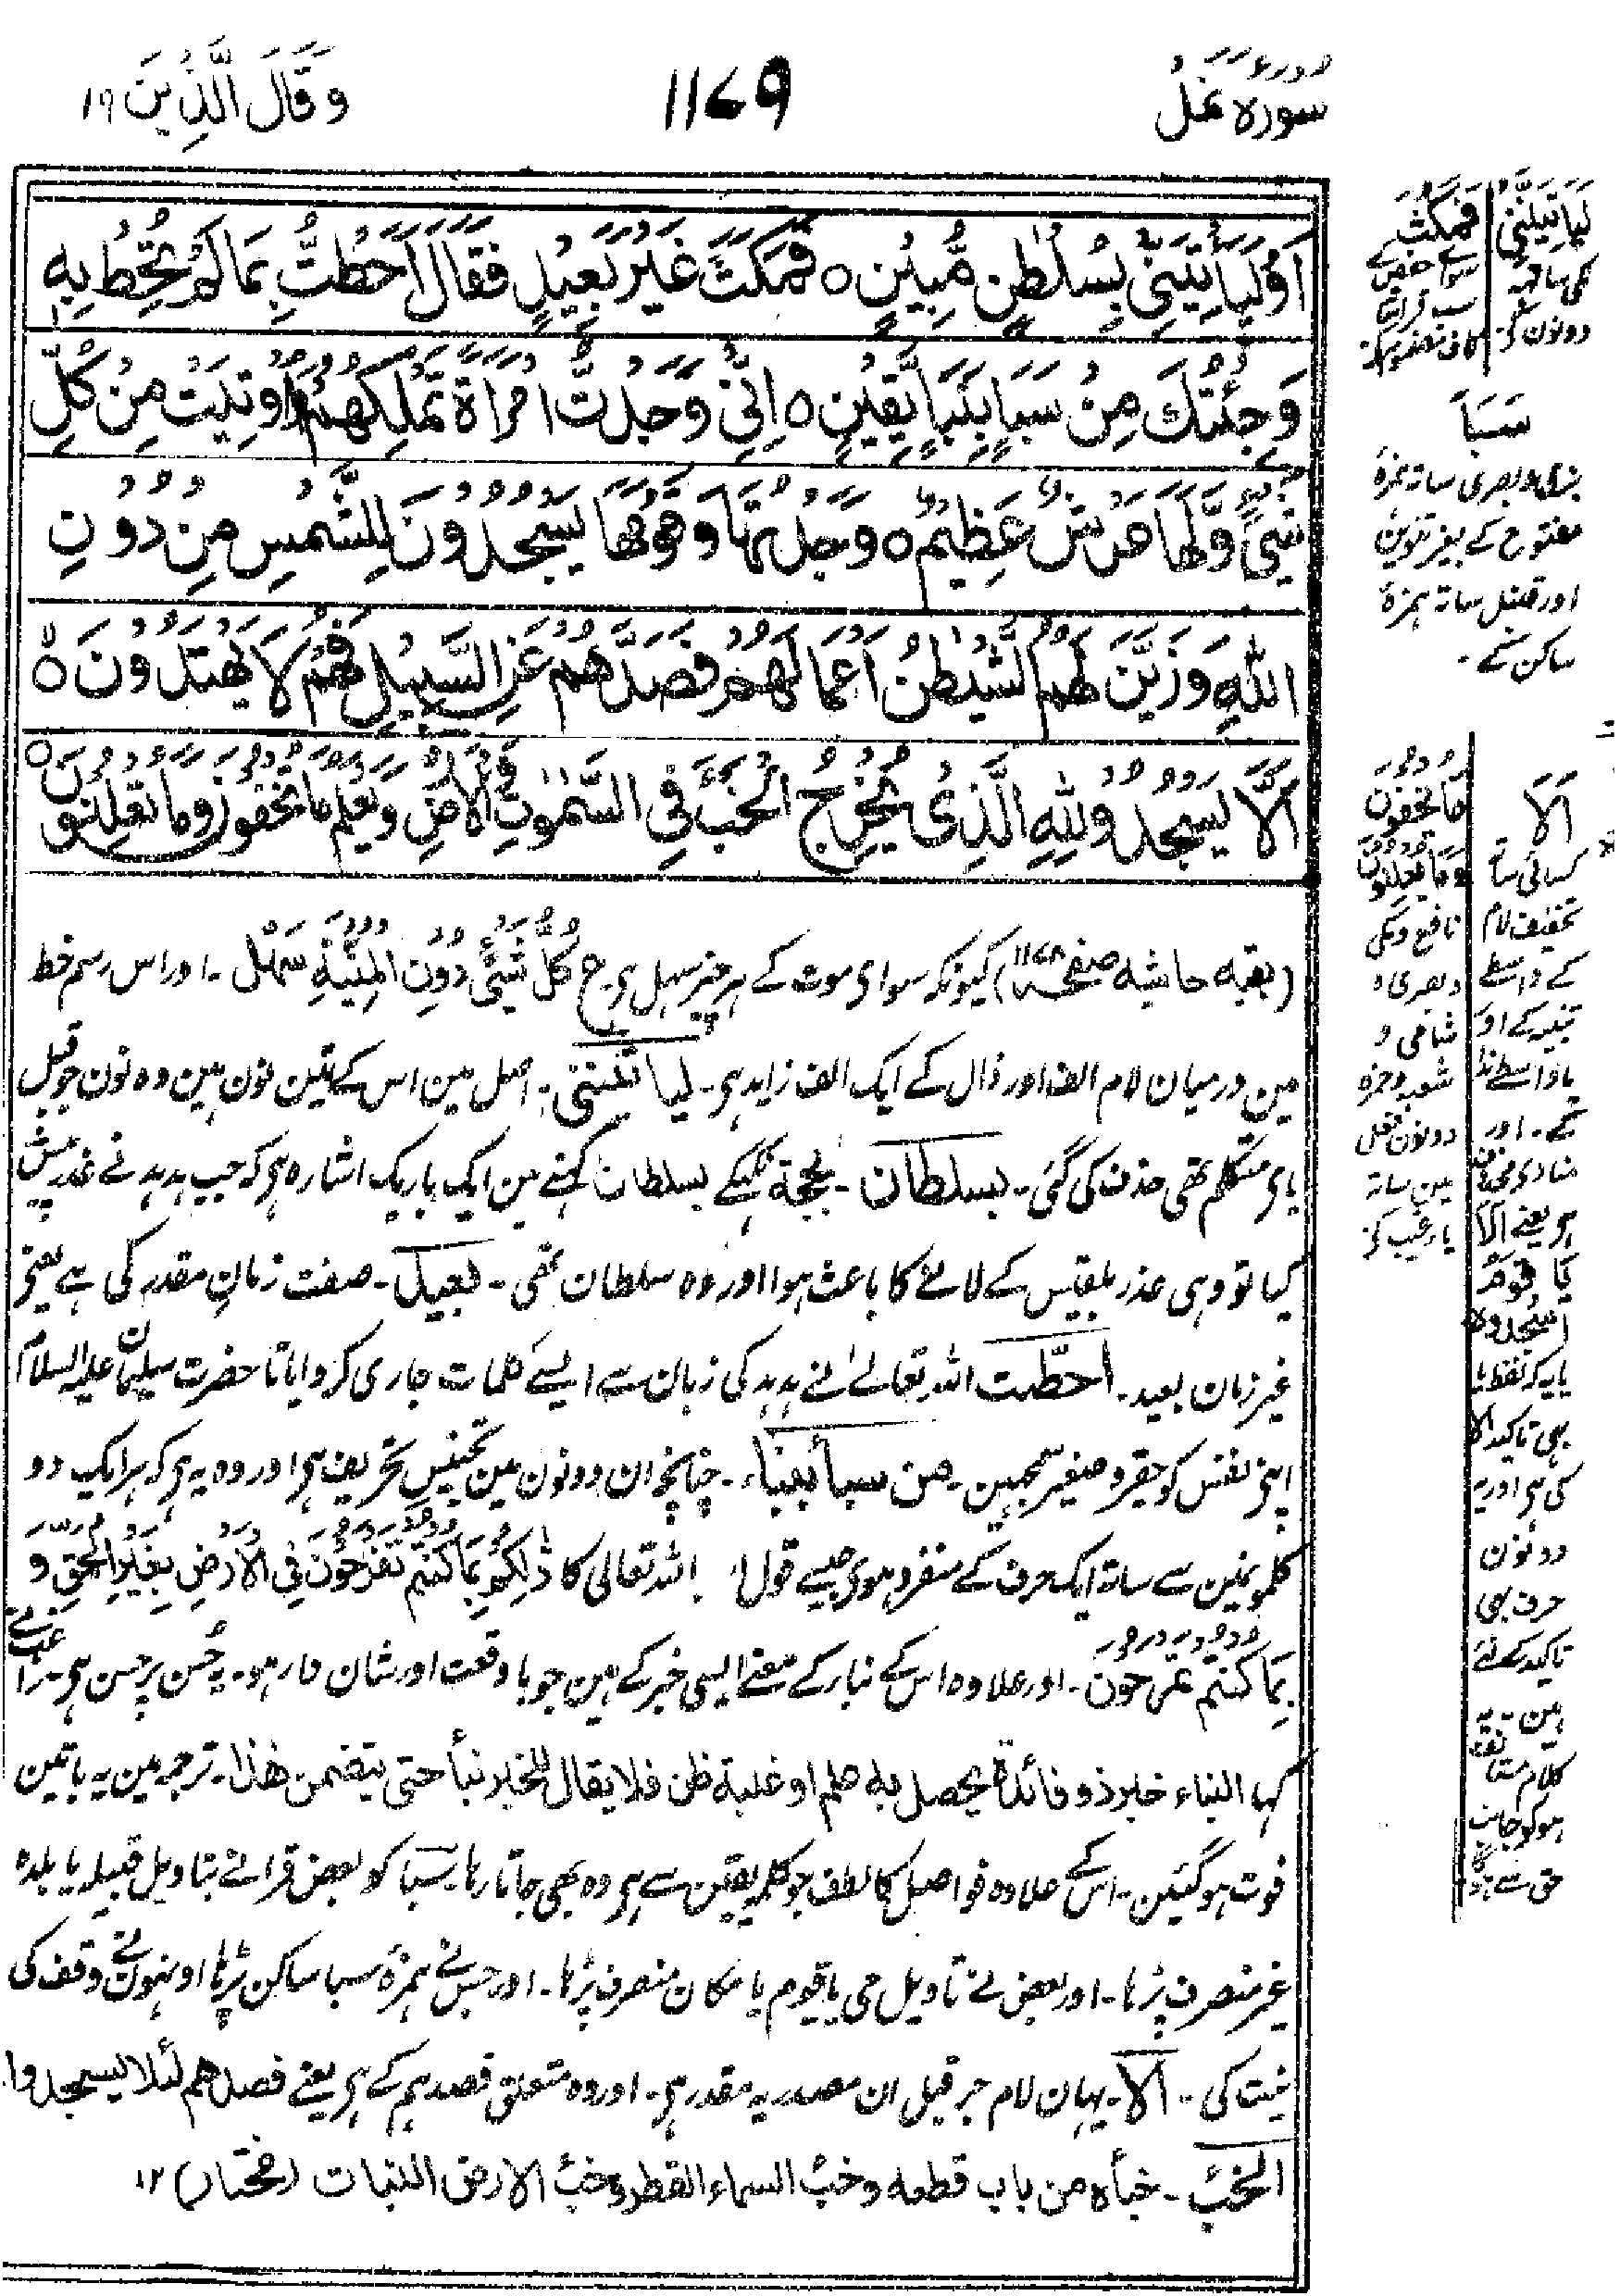 سورہ نمل
١١٦٩
وَقَالَ الَّذِيْنَ ١٩
اَوْ لَيَاْتِيَنِّيْ بِسُلْطٰنٍ مُّبِيْنٍ ٥ فَمَكَثَ غَيْرَ بَعِيْدٍ فَقَالَ اَحَطْتُّ بِمَا لَمْ تُحِطْ بِهٖ
وَجِئْتُكَ مِنْ سَبَاٍ بِنَبَاٍ يَّقِيْنٍ ٥ اِنِّيْ وَجَدْتُّ امْرَاَةً تَمْلِكُهُمْ وَاُوْتِيَتْ مِنْ كُلِّ
شَيْءٍ وَّلَهَا عَرْشٌ عَظِيْمٌ ٥ وَجَدْتُّهَا وَقَوْمَهَا يَسْجُدُوْنَ لِلشَّمْسِ مِنْ دُوْنِ
اللّٰهِ وَزَيَّنَ لَهُمُ الشَّيْطٰنُ اَعْمَالَهُمْ فَصَدَّهُمْ عَنِ السَّبِيْلِ فَهُمْ لَا يَهْتَدُوْنَ ٥
اَلَّا يَسْجُدُوْا لِلّٰهِ الَّذِيْ يُخْرِجُ الْخَبْءَ فِي السَّمٰوٰتِ وَالْاَرْضِ وَيَعْلَمُ مَا تُخْفُوْنَ وَمَا تُعْلِنُوْنَ ٥
(بقیہ حاشیہ صفحہ ١١٦٨) کیونکہ سوای موت کے ہر چیز سہل ہی ع كُلُّ شَيْءٍ دُوْنَ الْمَنِيَّةِ سَهْلٌ - اور اس رسم خط
مین درمیان لام الف اور ذال کے ایک الف زاید ہی - لیاتیننی - اصل مین اس کے تین نون ہین وہ نون جو قبل
یای متکلم تھی حذف کی گئی - بسلطان - بحجة نکہکے بسلطان کہنے مین ایک باریک اشارہ ہی کہ جب ہدہد نے عذر پیش
کیا تو وہی عذر بلقیس کے لانے کا باعث ہوا اور وہ سلطان تھی - بعید - صفت زمانِ مقدر کی ہے یعنی
غیر زمان بعید - احطت اللہ تعالےٰ نے ہدہد کی زبان سے ایسے کلمات جاری کروایا تا حضرت سلیمان علیہ السلام
اپنی نفس کو حقیر و صغیر سمجہین - من سبأ بنباء - چنانچہ ان دونون مین تجنیسِ تحریف ہی اور وہ یہ ہی کہ ہر ایک دو
کلمونمین سے ساتہ ایک حرف کے منفرد ہوی جیسے قول اللہ تعالی کا ذٰلِكُمْ بِمَا كُنْتُمْ تَفْرَحُوْنَ فِي الْاَرْضِ بِغَيْرِ الْحَقِّ وَ
بِمَا كُنْتُمْ تَمْرَحُوْنَ - اور علاوہ اس کے نبار کے معنے ایسی خبر کے ہین جو با وقعت اور شان دار ہو - یہ حُسن پر حسن ہی - راغب نے
کہا النباء خبر ذو فائدة يحصل به علم او غلبة ظن فلا يقال للخبر نبأ حتى يتضمن هذا - ترجمہ مین یہ باتین
فوت ہو گئین - اس کے علاوہ فواصل کا لطف جو کلمہ یقین سے ہی وہ بھی جاتا رہا - سبا کو بعض قرا نے بتاویل قبیلہ یا بلدہ
غیر منصرف پڑہا - اور بعض نے تاویل حی یا قوم یا مکان منصرف پڑہا - اور جس نے ہمزہ سبا ساکن پڑہا اونہون نے وقف کی
نیت کی - الا - یہان لام جر قبل ان مصدریہ مقدر ہی - اور وہ متعلق فصدہم کے ہی یعنے فصدهم لئلا يسجدوا
الخبء - خبأه من باب قطعه وخبء السماء القطر وخبء الارض النبات (مختار) ١٢
لَيَاْتِيَنَّنِيْ
مکی ساتہ
دونون
فَمَكُثَ
سوائے حفص کے
سَبَأَ
بزی و بصری ساتہ ہمزہ
مفتوح کے بغیر تنوین
اور قنبل ساتہ ہمزہ
ساکن کے -
اَلَا
کسائی ساتہ
تخفیف لام
کے واسطے
تنبیہ کے اور
یا واسطے ندا
کے - اور
منادی محذوف
ہو یعنے الا
يَا قَوْمِ
اسْجُدُوْا
یا یہ کہ لفظ یا
بھی تاکید الا
کی ہی اور یہ
دونون
حرف بھی
تاکید کے لئے
ہین - یہ
کلام مستانفہ
ہو کر جانب
حق سے ہو
مَا تُخْفُوْنَ
وَمَا تُعْلِنُوْنَ
نافع و مکی
و بصری و
شامی و
شعبہ و حمزہ
دونون فعل
مین ساتہ
یار غیب کے